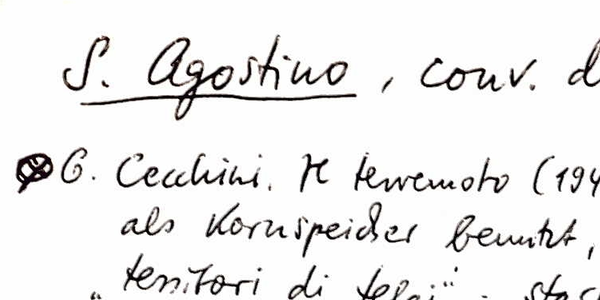 S. Agostino, conv. d
G. Cecchini. Il terremoto (194
als Kornspeicher benutzt,
"tessitori di telai". stac